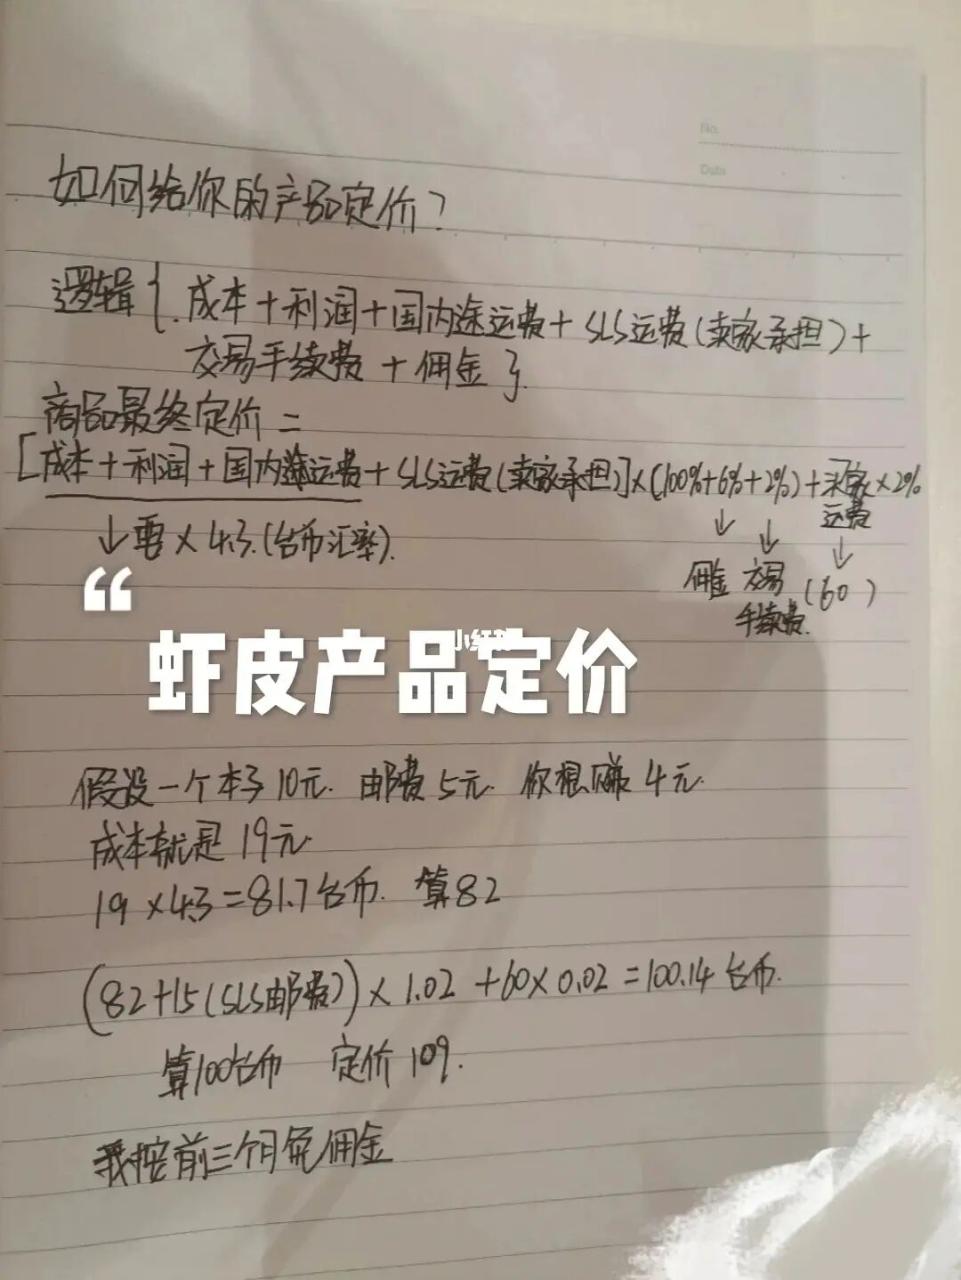 No.
Date
如何给你的产品定价？
逻辑{.成本+利润+国内途运费+SLS运费(卖家承担)+
交易手续费+佣金}.
商品最终定价=
[成本+利润+国内途运费+SLS运费(卖家承担)]×(100%+6%+2%)+买家×2%
运费
↓要×4.3.(台币汇率).
↓ ↓ ↓
佣金 交易 (60)
手续费.
“
小红书
虾皮产品定价
假设一个本子10元. 邮费5元. 你想赚4元.
成本就是19元
19×4.3=81.7台币. 算82
(82+15(SLS邮费))×1.02+60×0.02=100.14台币.
算100台币 定价109.
我按前三个月免佣金